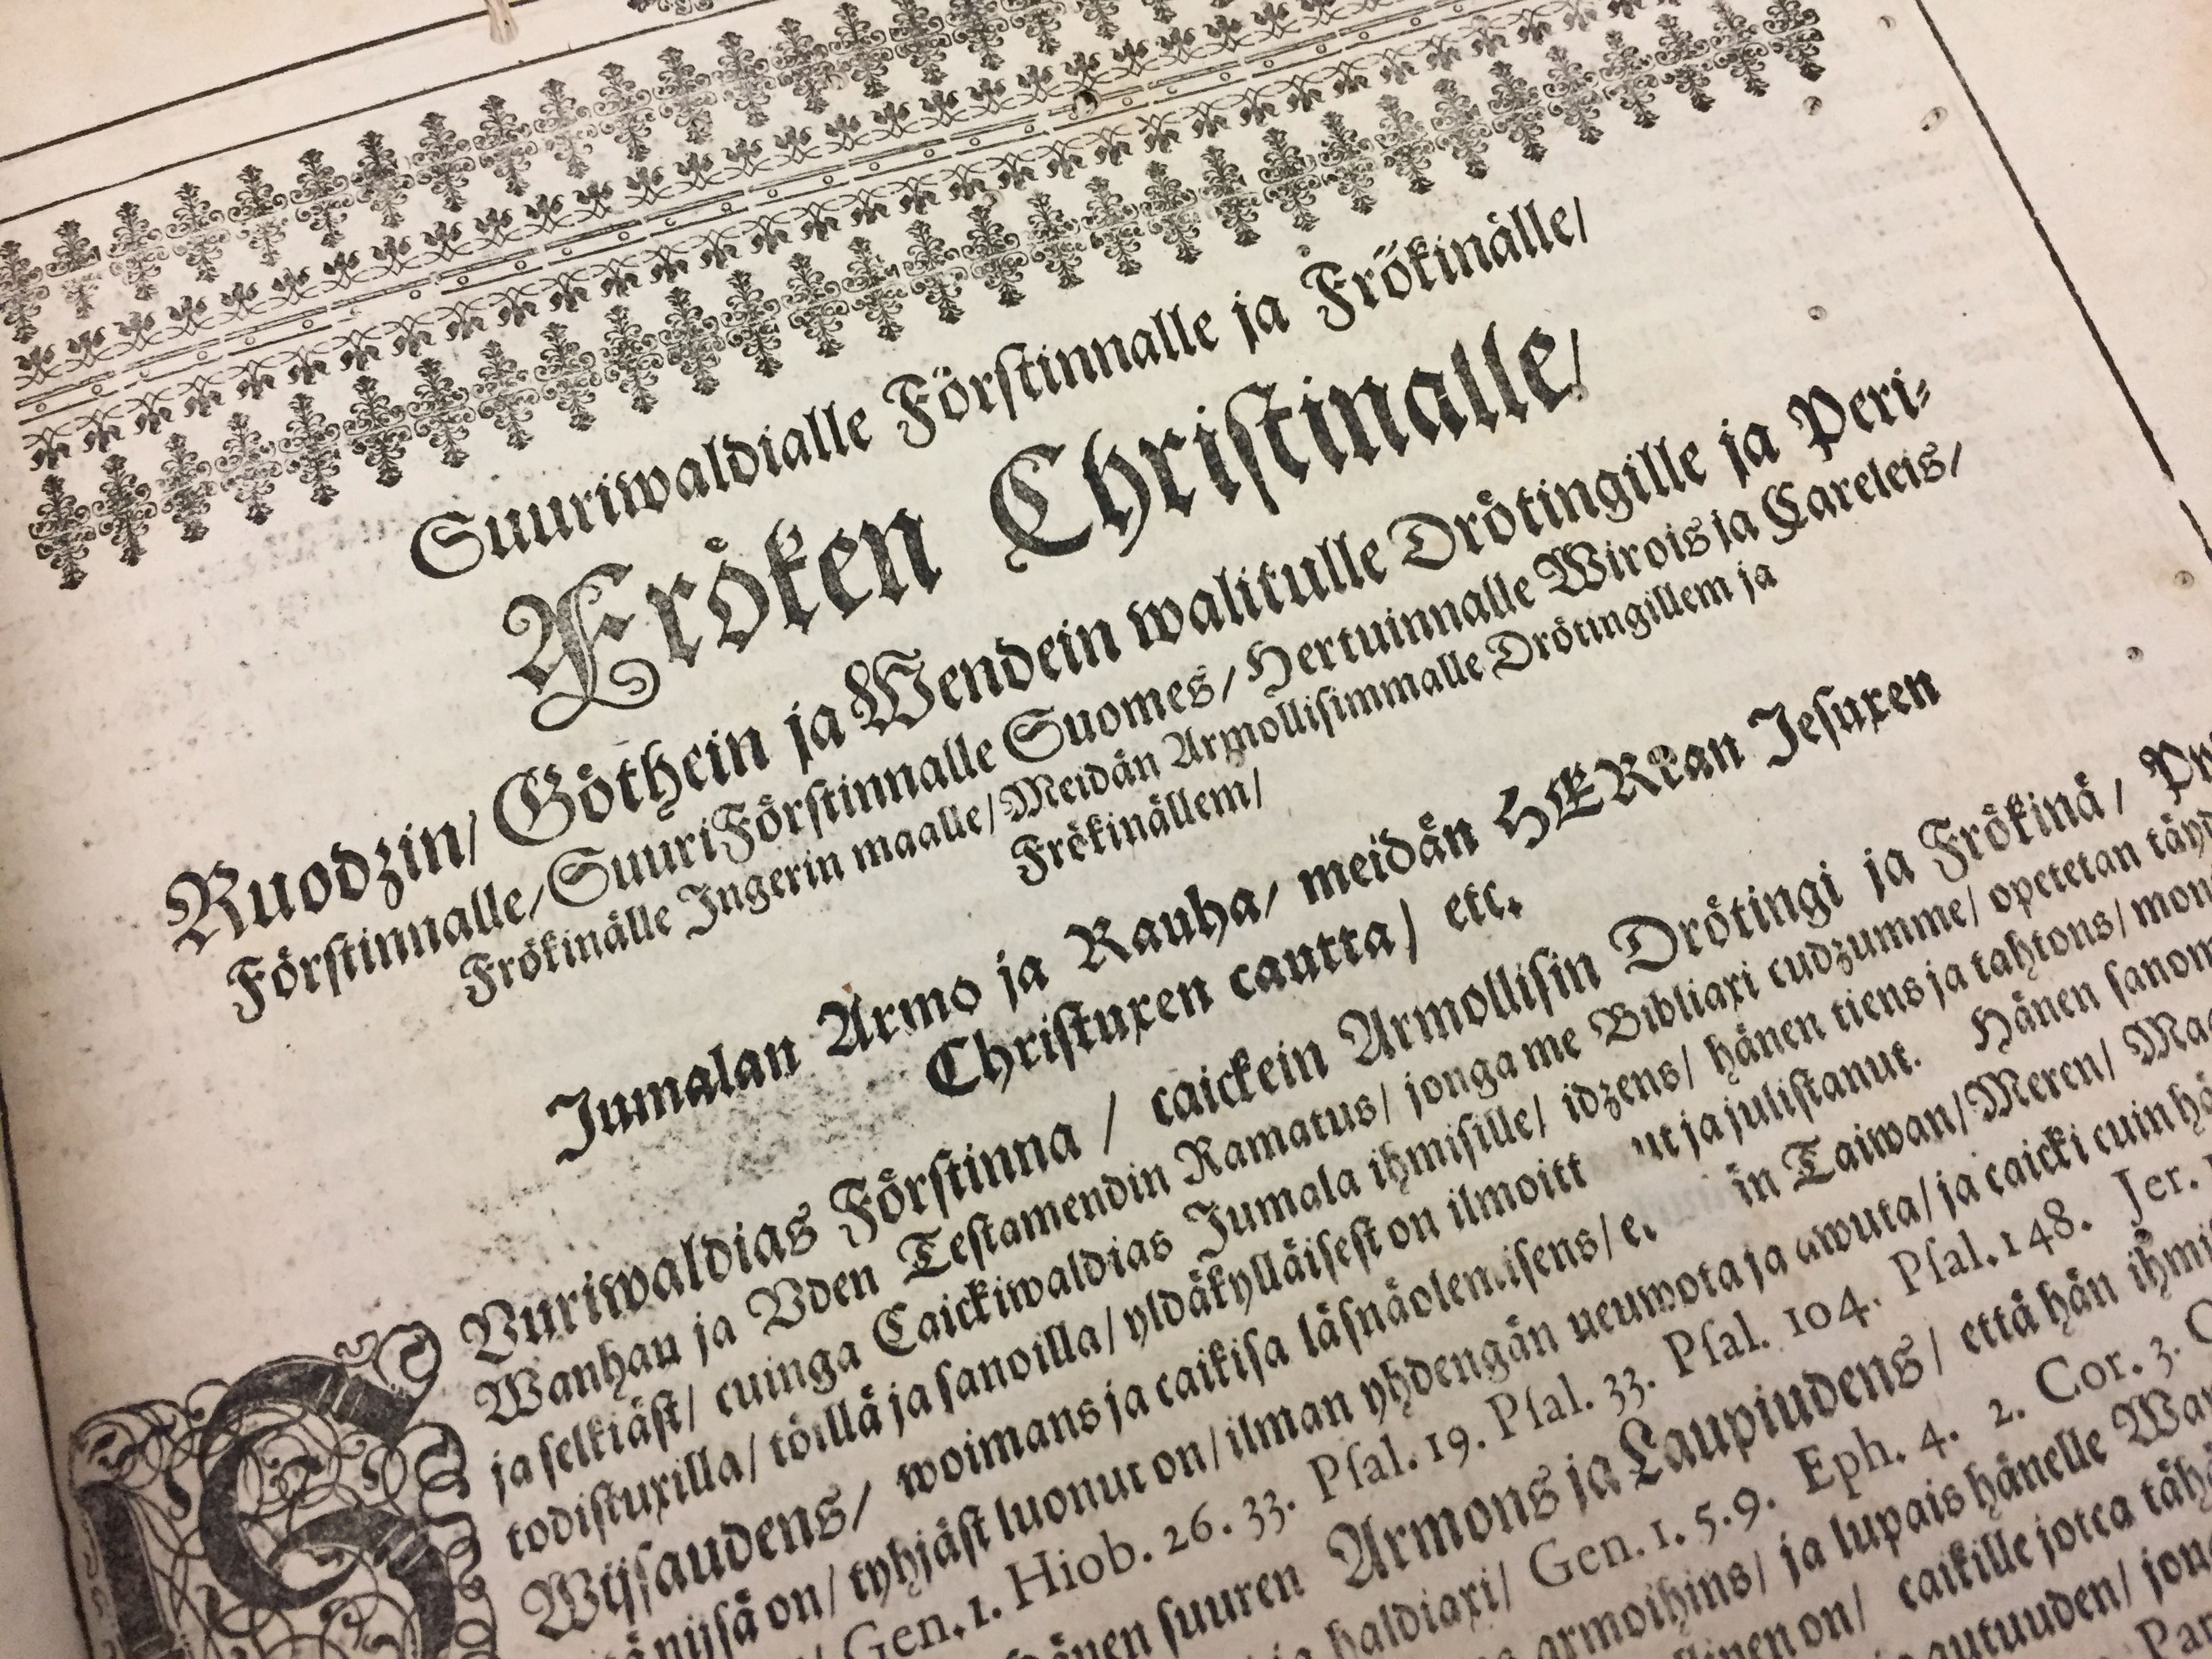 Suuriwaldialle Förstinnalle ja Frökinälle/
Fröken Christinalle/
Ruodzin/ Göthein ja Wendein walitulle Drötingille ja Peri-
Förstinnalle/ SuuriFörstinnalle Suomes/ Hertuinnalle Wirois ja Careleis/
Frökinälle Ingerin maalle/ Meidän Armollisimmalle Drötingillem ja
Frökinällem/
Jumalan Armo ja Rauha/ meidän HERran Jesuxen
Christuxen cautta/ etc.
SVuriwaldias Förstinna/ caickein Armollisin Drötingi ja Frökinä/
Wanhau ja Vden Testamendin Ramatus/ jonga me Bibliaxi cudzumme/ opetetan
ja selkiäst/ cuinga Caickiwaldias Jumala ihmisille/ idzens/ hänen tiens ja tahtons/
todistuxilla/ töillä ja sanoilla/ yldäkylläisest on ja julistanut. Hänen
Wijsaudens/ woimans ja caikisa läsnäolemisens/ Taiwan/ Meren/
on/ tyhjäst luonut on/ ilman yhdengän neuwota ja awuta/ ja caicki cuin
Gen. 1. Hiob. 26. 33. Psal. 19. Psal. 33. Psal. 104. Psal. 148. Jer.
suuren Armons ja Laupiudens/ että hän
haldiaxi/ Gen. 1. 5. 9. Eph. 4. 2. Cor. 3.
armoihins/ ja lupais hänelle
on/ caikille jotca
autuuden/